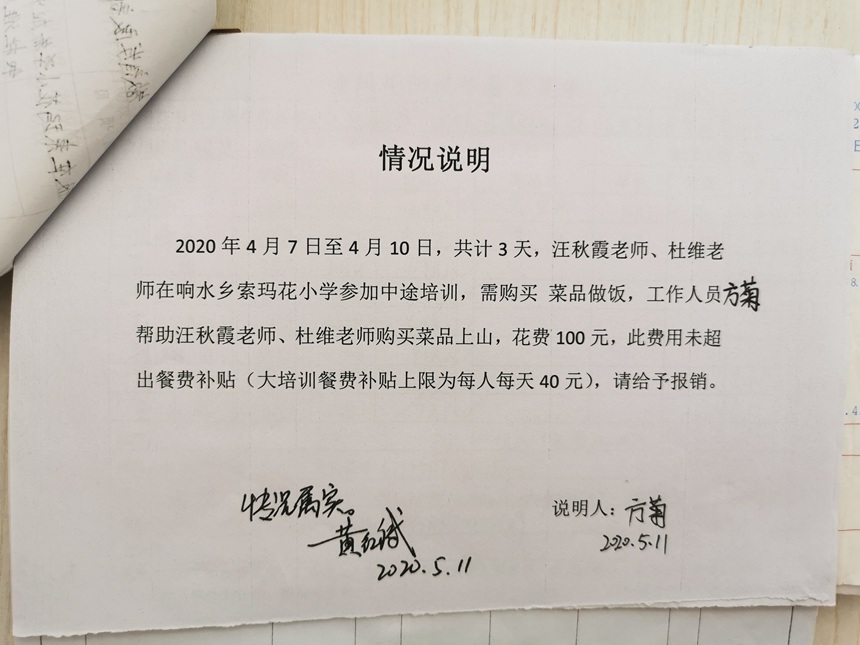 情况说明
2020 年 4 月 7 日至 4 月 10 日，共计 3 天，汪秋霞老师、杜维老
师在响水乡索玛花小学参加中途培训，需购买 菜品做饭，工作人员方菊
帮助汪秋霞老师、杜维老师购买菜品上山，花费 100 元，此费用未超
出餐费补贴（大培训餐费补贴上限为每人每天 40 元），请给予报销。
情况属实。
黄红斌
2020.5.11
说明人：方菊
2020.5.11